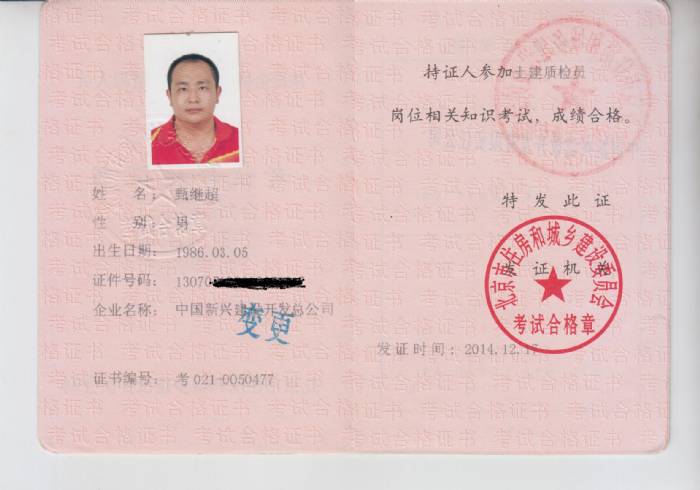 姓 名: 甄继超
性 别: 男
出生日期: 1986.03.05
证件号码: 13070
企业名称: 中国新兴建设开发总公司
变更
证书编号: 考021-0050477
持证人参加土建质检员
岗位相关知识考试，成绩合格。
特发此证
发证机关
北京市住房和城乡建设委员会
考试合格章
发证时间: 2014.12.17